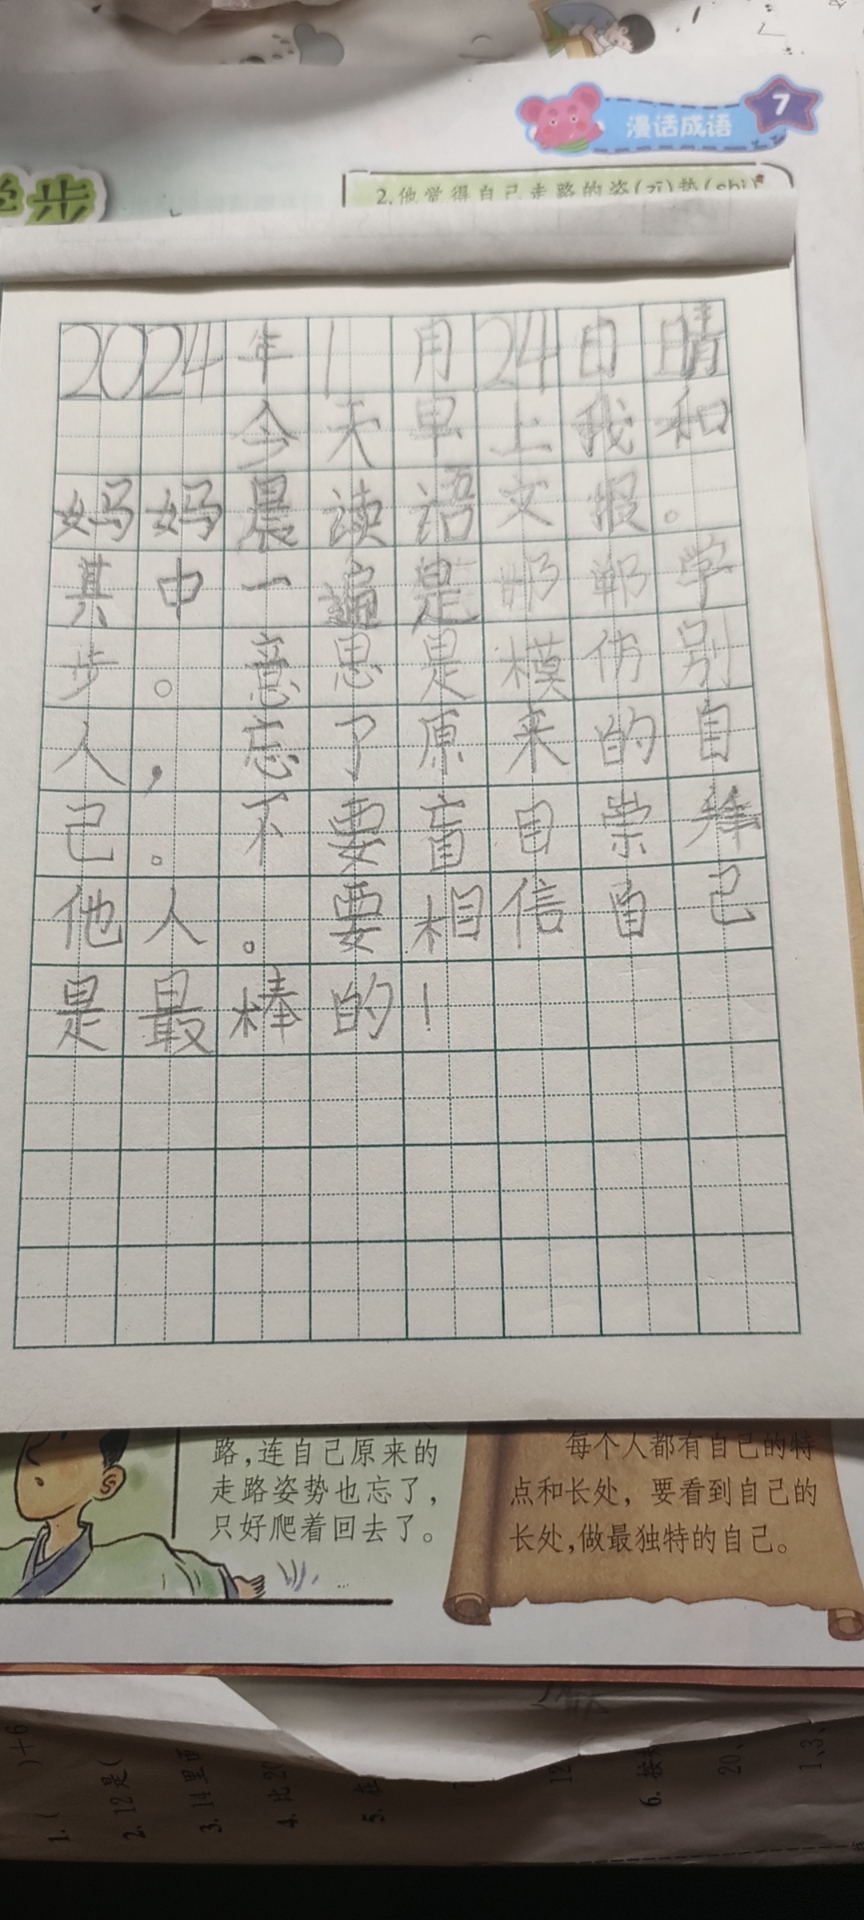 漫话成语
7
步
2.他觉得自己走路的姿(zī)势(shì)
2024年1月24日晴
今天早上我和
妈妈晨读语文报。
其中一遍是邯郸学
步。意思是模仿别
人，忘了原来的自
己。不要盲目崇拜
他人。要相信自己
是最棒的！
路，连自己原来的
走路姿势也忘了，
只好爬着回去了。
每个人都有自己的特
点和长处，要看到自己的
长处，做最独特的自己。
1.(
)+6
2.12是(
3.14里面
4.比20
5.在
12
6.按
20、
1、3、